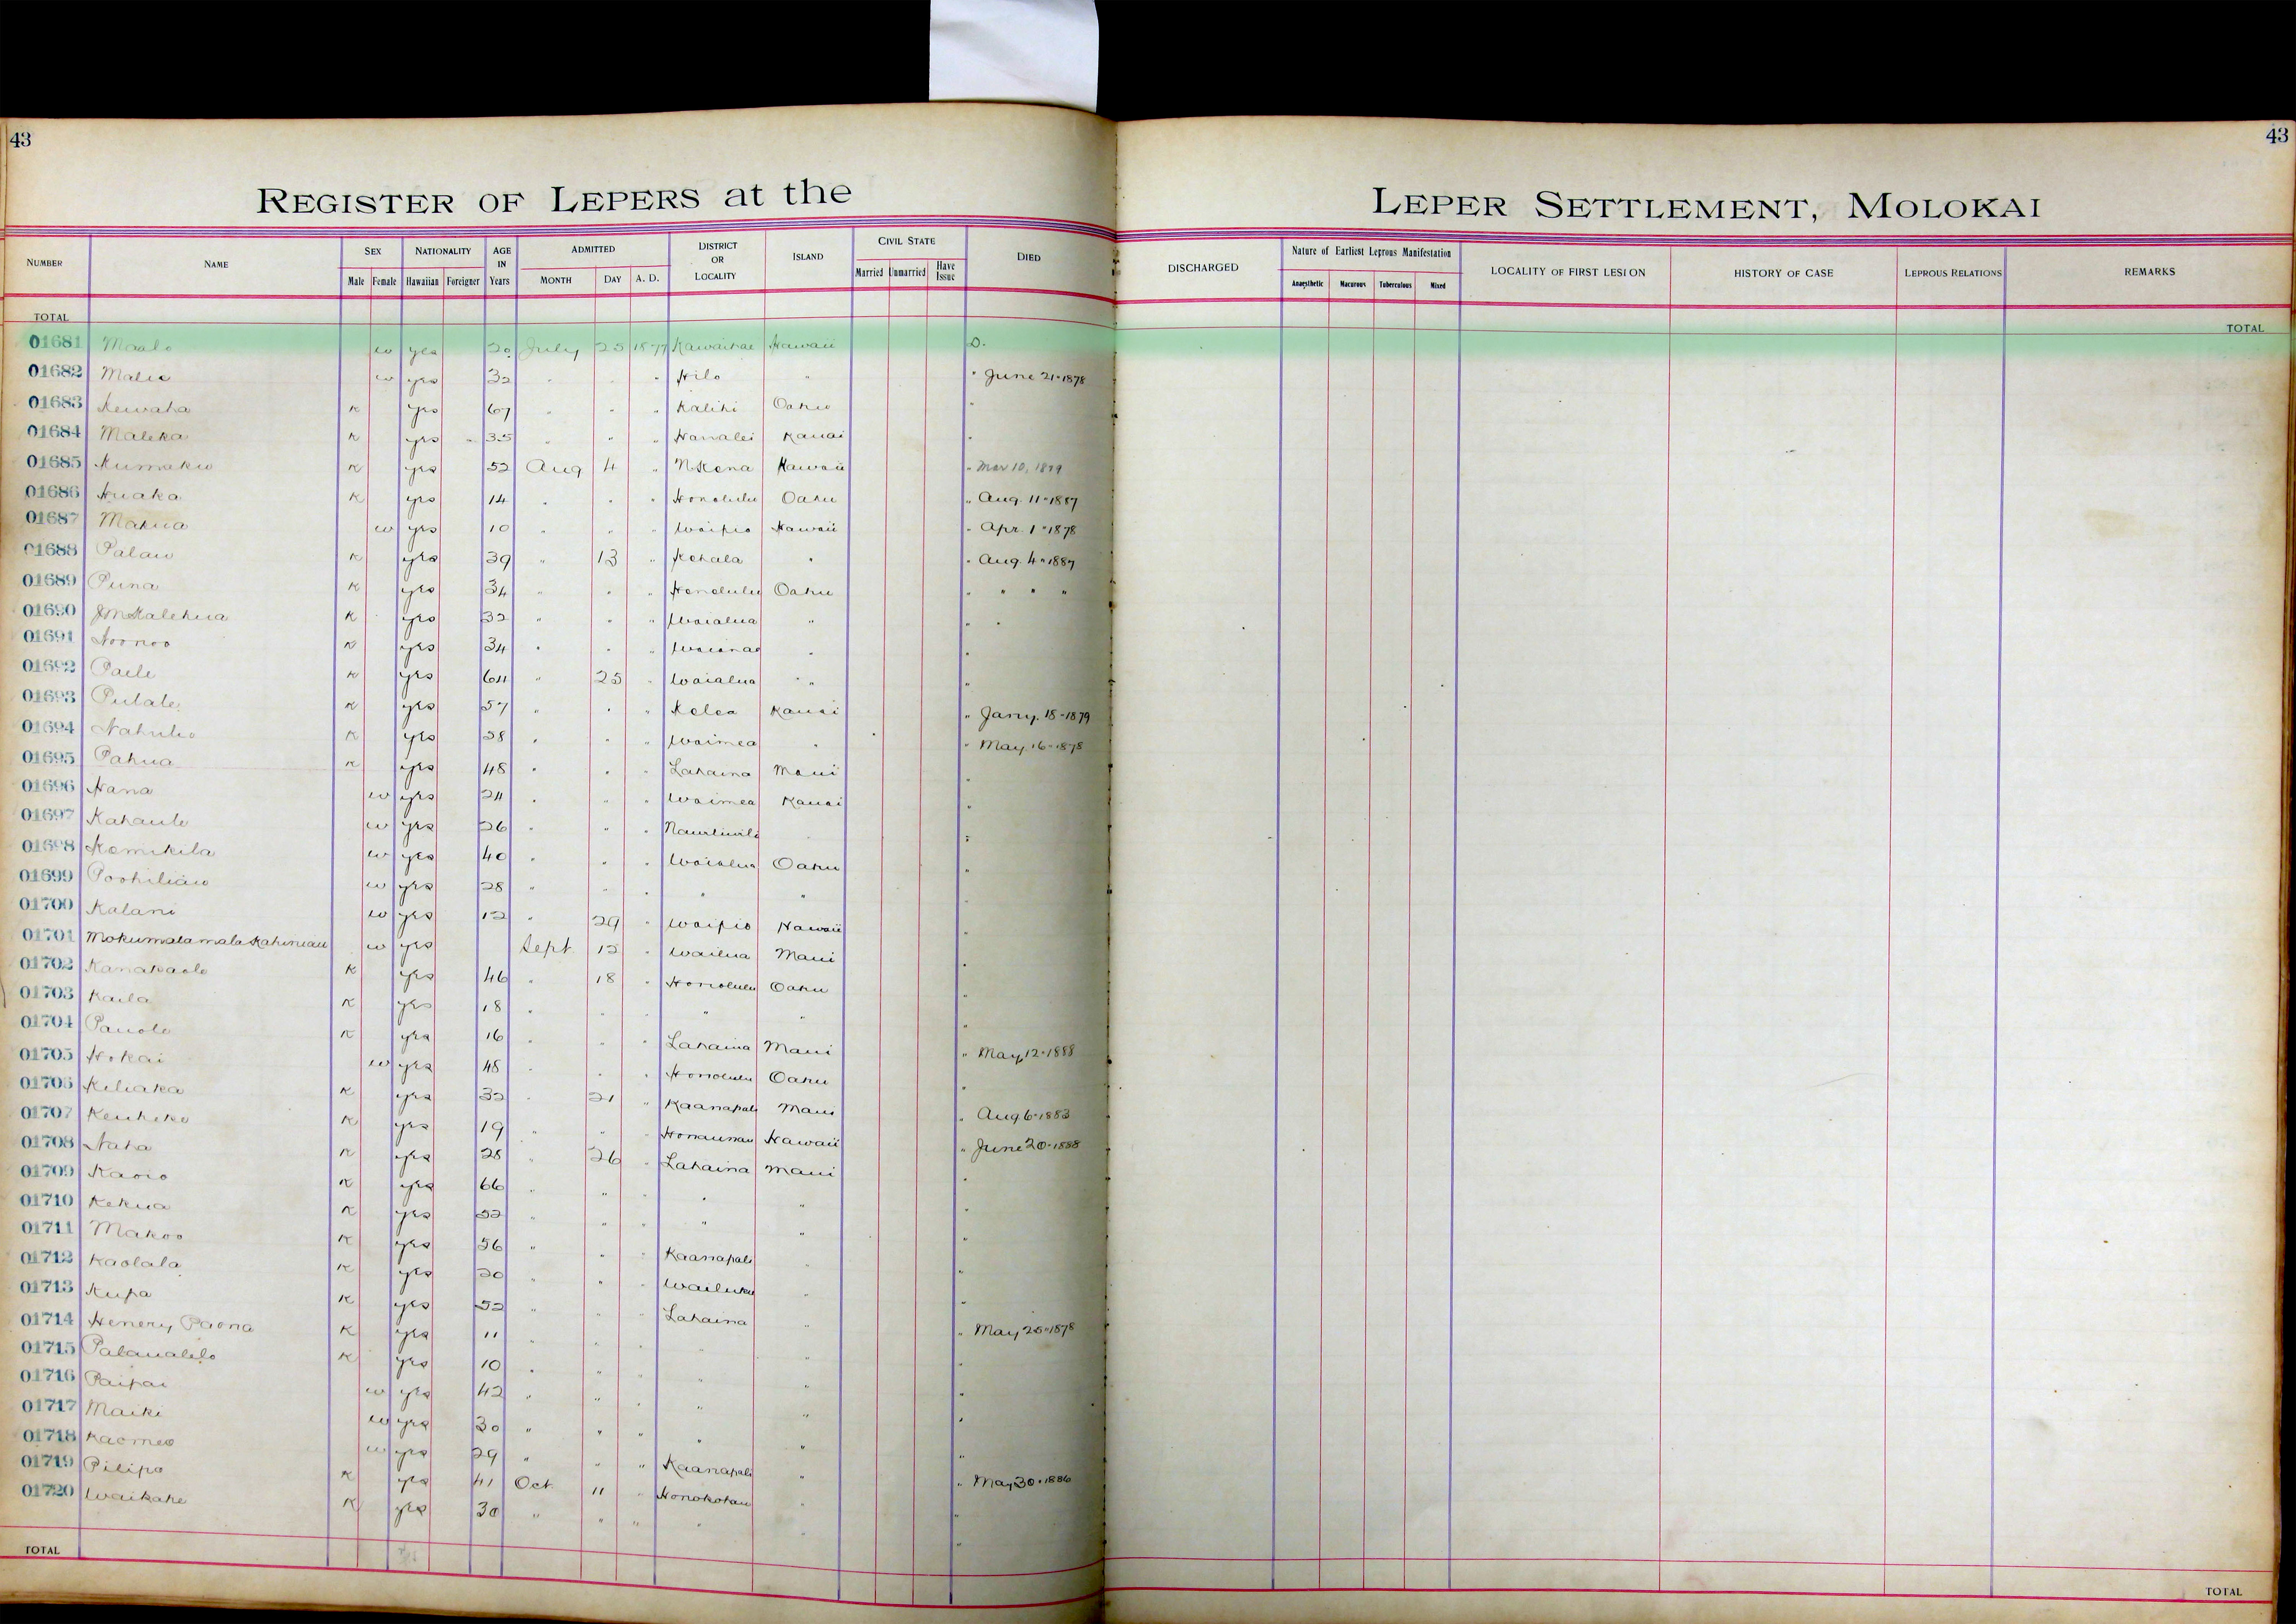 43
43
REGISTER OF LEPERS at the LEPER SETTLEMENT, MOLOKAI
NUMBER NAME SEX NATIONALITY AGE IN Years ADMITTED DISTRICT OR LOCALITY ISLAND CIVIL STATE DIED DISCHARGED Nature of Earliest Leprous Manifestation LOCALITY OF FIRST LESION HISTORY OF CASE LEPROUS RELATIONS REMARKS
Male Female Hawaiian Foreigner MONTH DAY A. D. Married Unmarried Have Issue Anaesthetic Macurous Tuberculous Mixed
TOTAL TOTAL
01681 Maalo w yes 20 July 25 1877 Kawaihae Hawaii D.
01682 Malie w yes 32 " " " Hilo " " June 21-1878
01683 Kewaha K yes 67 " " " Kalihi Oahu "
01684 Maleka K yes 35 " " " Hanalei Kauai "
01685 Kumaku K yes 52 Aug 4 " N. Kona Hawaii " Mar 10, 1879
01686 Huaka K yes 14 " " " Honolulu Oahu " Aug. 11-1887
01687 Mahua w yes 10 " " " Waipio Hawaii " Apr. 1-1878
01688 Palau K yes 39 " 13 " Kohala " " Aug. 4-1887
01689 Puna K yes 34 " " " Honolulu Oahu " " " "
01690 J M Kalehua K yes 32 " " " Waialua " " "
01691 Hoonoo K yes 34 " " " Waianae " "
01692 Paele K yes 64 " 25 " Waialua " " "
01693 Pulale K yes 57 " " " Kolea Kauai " Jany. 18-1879
01694 Nahuho K yes 28 " " " Waimea " " May 16-1878
01695 Pahua K yes 48 " " " Lahaina Maui "
01696 Hana w yes 24 " " " Waimea Kauai "
01697 Kahaule w yes 26 " " " Nawiliwili "
01698 Komikila w yes 40 " " " Waialua Oahu "
01699 Poohiliau w yes 28 " " " " "
01700 Kalani w yes 12 " 29 " Waipio Hawaii "
01701 Mokumalamala Kahiniau w yes Sept 12 " Wailua Maui "
01702 Kanakaole K yes 46 " 18 " Honolulu Oahu "
01703 Kaila K yes 18 " " " " " "
01704 Pauole K yes 16 " " " Lahaina Maui " May 12-1888
01705 Hokai w yes 48 " " " Honolulu Oahu "
01706 Keliaka K yes 32 " 21 " Kaanapali Maui " Aug 6-1883
01707 Keuheke K yes 19 " " " Honaunau Hawaii " June 20-1888
01708 Naha K yes 28 " 26 " Lahaina Maui "
01709 Kaoio K yes 66 " " " " " "
01710 Kekua K yes 52 " " " " " "
01711 Makoo K yes 56 " " " Kaanapali " "
01712 Kaolala K yes 20 " " " Wailuku " "
01713 Kupa K yes 52 " " " Lahaina " " May 25-1878
01714 Henery Paona K yes 11 " " " " " "
01715 Palaualelo K yes 10 " " " " " "
01716 Paipai w yes 42 " " " " " "
01717 Maiki w yes 30 " " " " " "
01718 Kaomeo w yes 29 " " " Kaanapali " " May 30-1886
01719 Pilipo K yes 41 Oct 11 " Honokohau " "
01720 Waikahe K yes 30 " " " " " "
TOTAL TOTAL